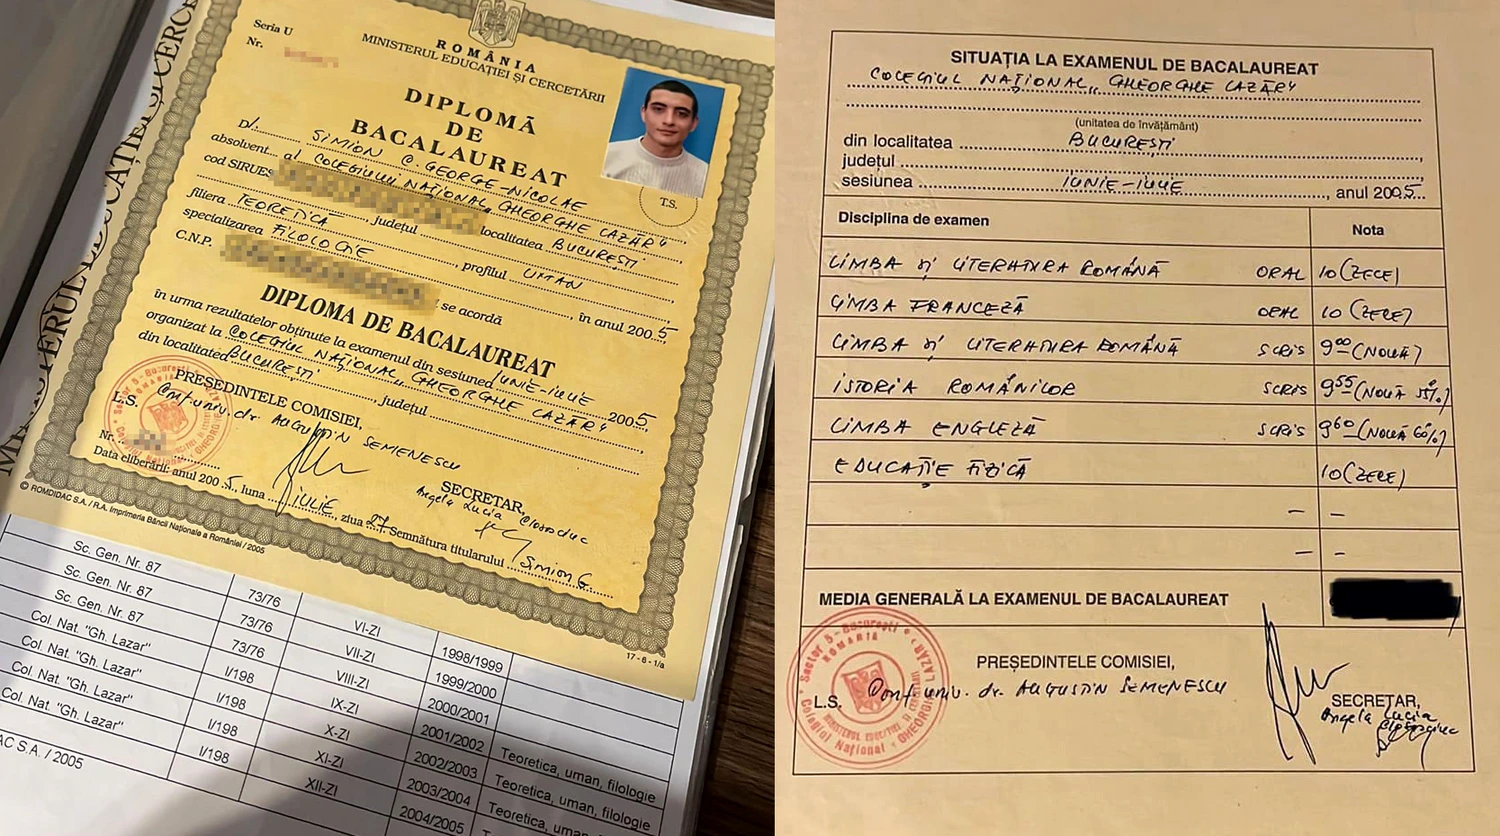 Seria U
Nr.
ROMÂNIA
MINISTERUL EDUCAȚIEI ȘI CERCETĂRII
DIPLOMĂ
DE
BACALAUREAT
D/.
SIMION C. GEORGE-NICOLAE
absolvent.. al COLEGIULUI NAȚIONAL „GHEORGHE LAZĂR”
cod SIRUES localitatea BUCUREȘTI
filiera TEORETICĂ, județul
specializarea FILOLOGIE, profilul UMAN
C.N.P. se acordă
DIPLOMA DE BACALAUREAT, în anul 2005
în urma rezultatelor obținute la examenul din sesiunea IUNIE-IULIE 2005
organizat la COLEGIUL NAȚIONAL „GHEORGHE LAZĂR”
din localitatea BUCUREȘTI, județul
PREȘEDINTELE COMISIEI,
L.S. Conf. univ. dr. AUGUSTIN SEMENESCU
T.S.
SECRETAR,
Angela Lucia
Nr.
Data eliberării: anul 2005, luna IULIE, ziua 27 Semnătura titularului Simion G.
© ROMDIDAC S.A. / R.A. Imprimeria Băncii Naționale a României / 2005
17-6-1/a
Sc. Gen. Nr. 87 73/76 VI-ZI 1998/1999
Sc. Gen. Nr. 87 73/76 VII-ZI 1999/2000
Sc. Gen. Nr. 87 73/76 VIII-ZI 2000/2001
Col. Nat. "Gh. Lazar" I/198 IX-ZI 2001/2002 Teoretica, uman, filologie
Col. Nat. "Gh. Lazar" I/198 X-ZI 2002/2003 Teoretica, uman, filologie
Col. Nat. "Gh. Lazar" I/198 XI-ZI 2003/2004 Teoretica, uman,
Col. Nat. "Gh. Lazar" I/198 XII-ZI 2004/2005
S.A. / 2005
SITUAȚIA LA EXAMENUL DE BACALAUREAT
COLEGIUL NAȚIONAL „GHEORGHE LAZĂR”
(unitatea de învățământ)
din localitatea BUCUREȘTI,
județul
sesiunea IUNIE-IULIE, anul 2005
Disciplina de examen Nota
LIMBA ȘI LITERATURA ROMÂNĂ ORAL 10 (ZECE)
LIMBA FRANCEZĂ ORAL 10 (ZECE)
LIMBA ȘI LITERATURA ROMÂNĂ SCRIS 9 00 (NOUĂ)
ISTORIA ROMÂNILOR SCRIS 9 55 (NOUĂ 55%)
LIMBA ENGLEZĂ SCRIS 9 60 (NOUĂ 60%)
EDUCAȚIE FIZICĂ 10 (ZECE)
– –
– –
MEDIA GENERALĂ LA EXAMENUL DE BACALAUREAT
PREȘEDINTELE COMISIEI,
L.S. Conf. univ. dr. AUGUSTIN SEMENESCU
SECRETAR,
Angela Lucia